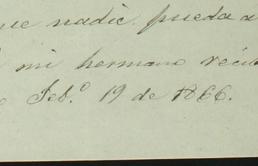 ue nadie pueda a
mi hermano recib
Feb.º 19 de 1866.